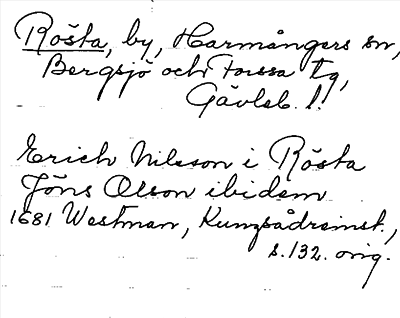 Rösta, by, Harmångers sn,
Bergsjö och Forssa tg,
Gävleb. l.
Erich Nilsson i Rösta
Jöns Olson ibidem
1681 Westman, Kungsådreinst.,
s. 132. orig.